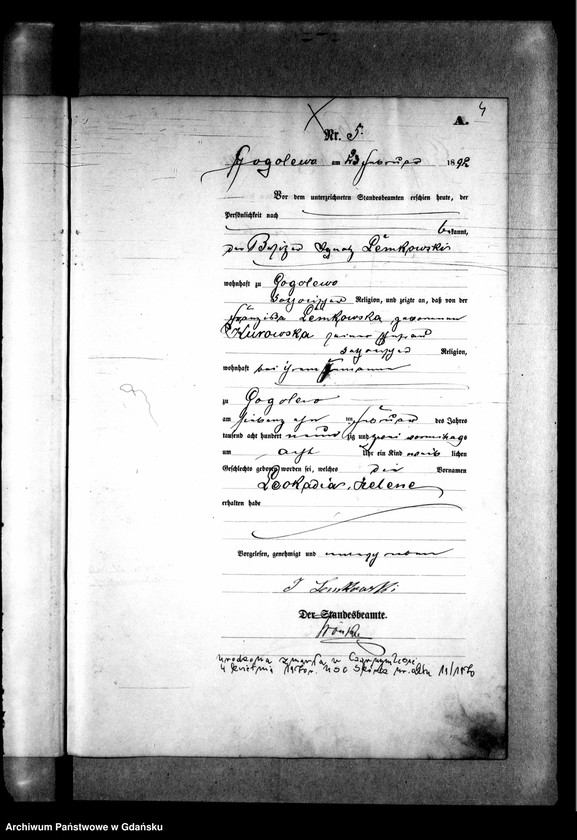 4
A.
Nr. 5.
Gogolewo am 23 Februar 1892
Vor dem unterzeichneten Standesbeamten erschien heute, der
Persönlichkeit nach
bekannt,
der Besitzer Ignatz Lemkowski
wohnhaft zu Gogolewo
katholischer Religion, und zeigte an, daß von der
Franziska Lemkowska geborenen
Kurowska seiner Ehefrau
katholischer Religion,
wohnhaft bei ihrem Ehemanne
zu Gogolewo
am siebenzehn ten Februar des Jahres
tausend acht hundert neunzig und zwei vormittags
um acht Uhr ein Kind weiblichen
Geschlechts geboren worden sei, welches die Vornamen
Leokadia, Helene
erhalten habe
Vorgelesen, genehmigt und unterschrieben
J Lemkowski
Der Standesbeamte.
urodzona zmarła w
4 kwietnia USC nr. aktu 11/1970
Archiwum Państwowe w Gdańsku